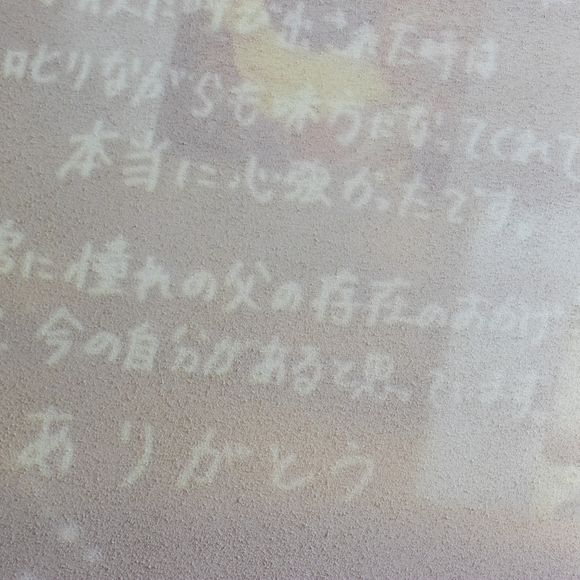 叱りながらも味方になってくれて
本当に心強かったです。
常に憧れの父の存在のおかげ
今の自分があると思っています
ありがとう